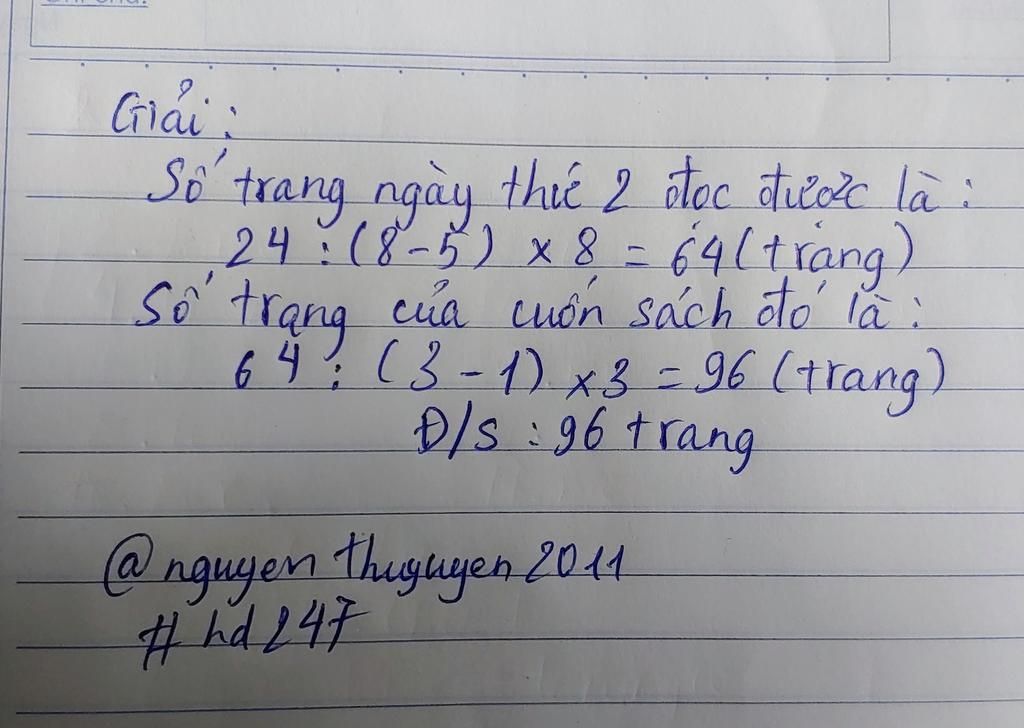 Giải:
Số trang ngày thứ 2 đọc được là:
24 : (8 - 5) x 8 = 64 (trang)
Số trang của cuốn sách đó là:
64 : (3 - 1) x 3 = 96 (trang)
Đ/S : 96 trang
@nguyen thuyuyen 2011
# hd 247